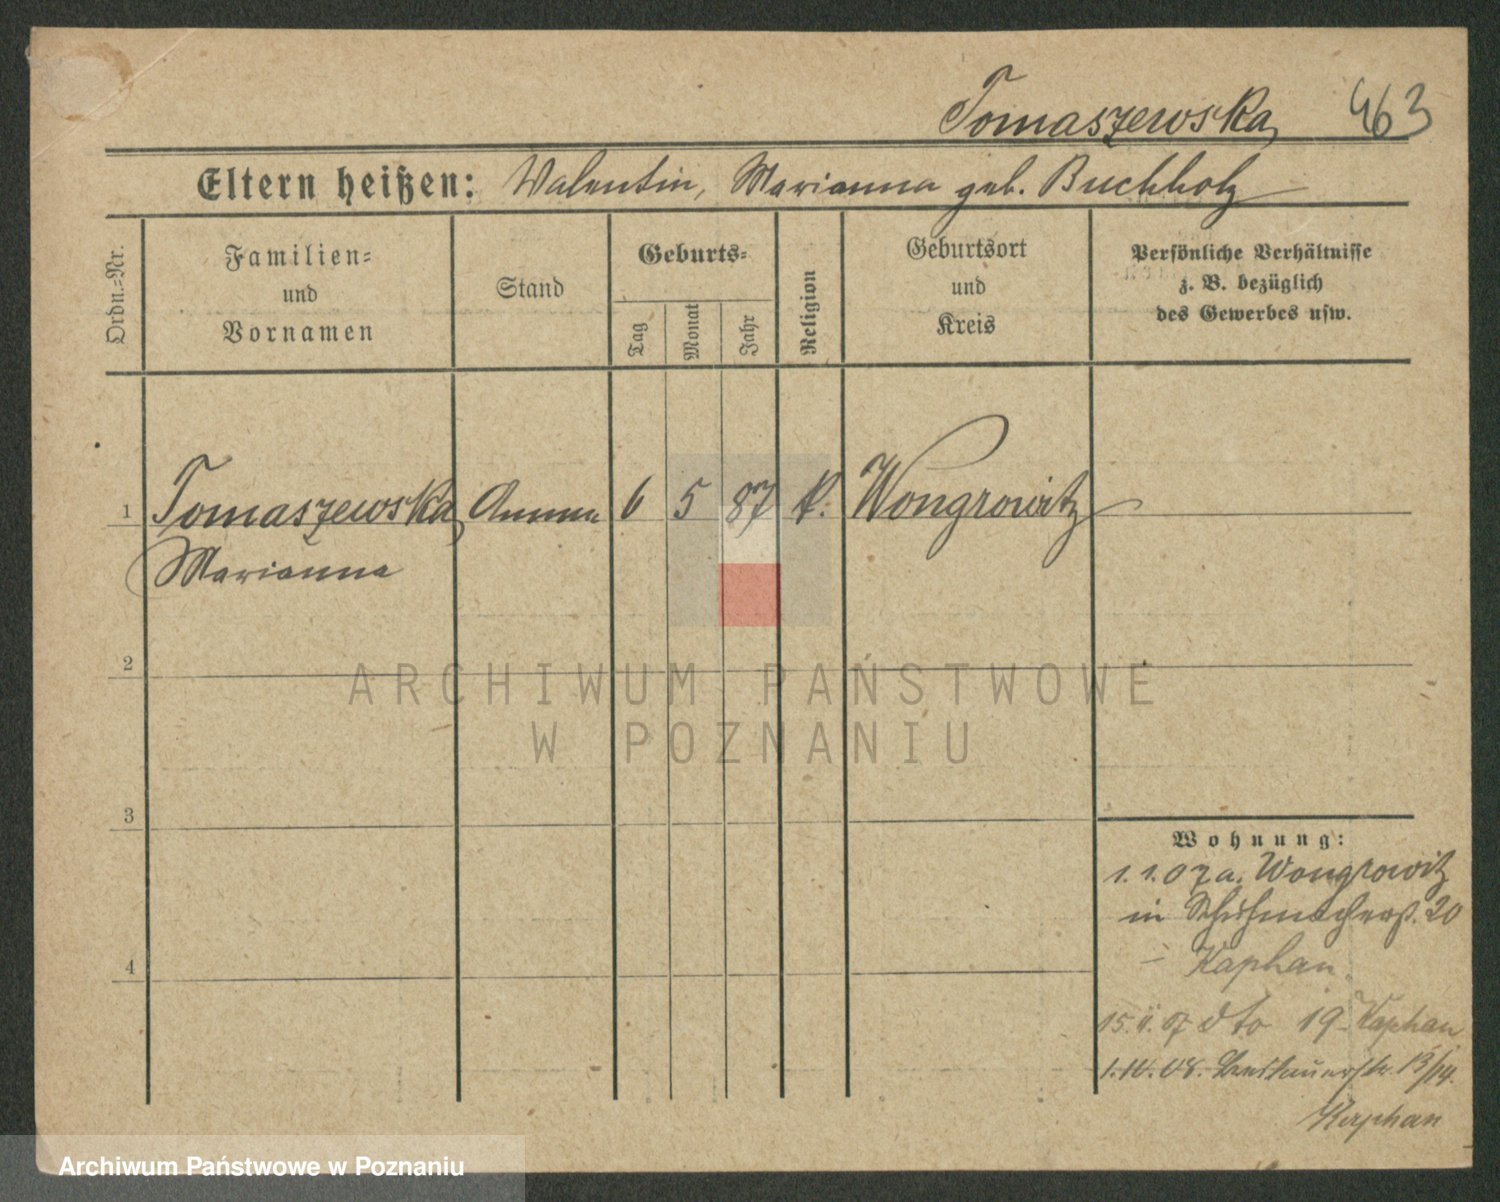 Tomaszewska 463
Eltern heißen: Valentin, Marianna geb. Buchholz
Ordn.-Nr.
Familien-
und
Vornamen
Stand
Geburts-
Tag
Monat
Jahr
Religion
Geburtsort
und
Kreis
Persönliche Verhältnisse
z. B. bezüglich
des Gewerbes usw.
1 Tomaszewska Amme 6 5 87 k. Wongrowitz
Marianna
2
3
4
Wohnung:
1.1.07 a. Wongrowitz
in Schuhmacherst. 20
- Kaphan.
15. 07 dto 19 Kaphan
1.10.08. 13/14.
Kaphan
ARCHIWUM PAŃSTWOWE
W POZNANIU
Archiwum Państwowe w Poznaniu